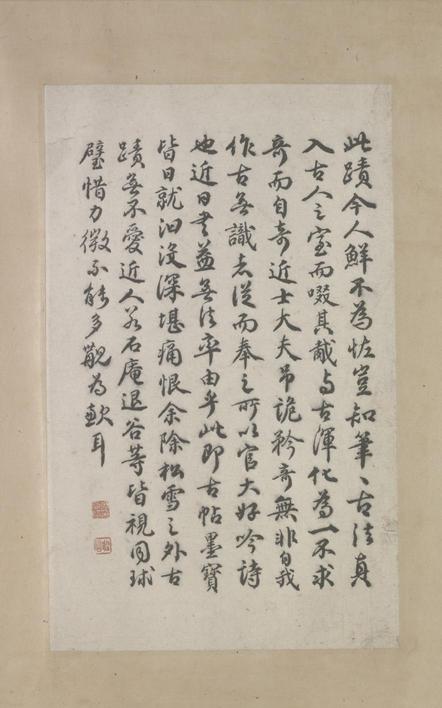 此蹟今人鮮不為恠豈知筆〻古法真
入古人之室而啜其胾與古渾化為一不求
奇而自奇近士大夫吊詭矜奇無非自我
作古無識者從而奉之所以官大好吟詩
也近日書益無法率由乎此即古帖墨寶
皆日就汩沒深堪痛恨余除松雪之外古
蹟無不愛近人若石庵退谷等皆視同球
璧惜力微不能多觀為歉耳